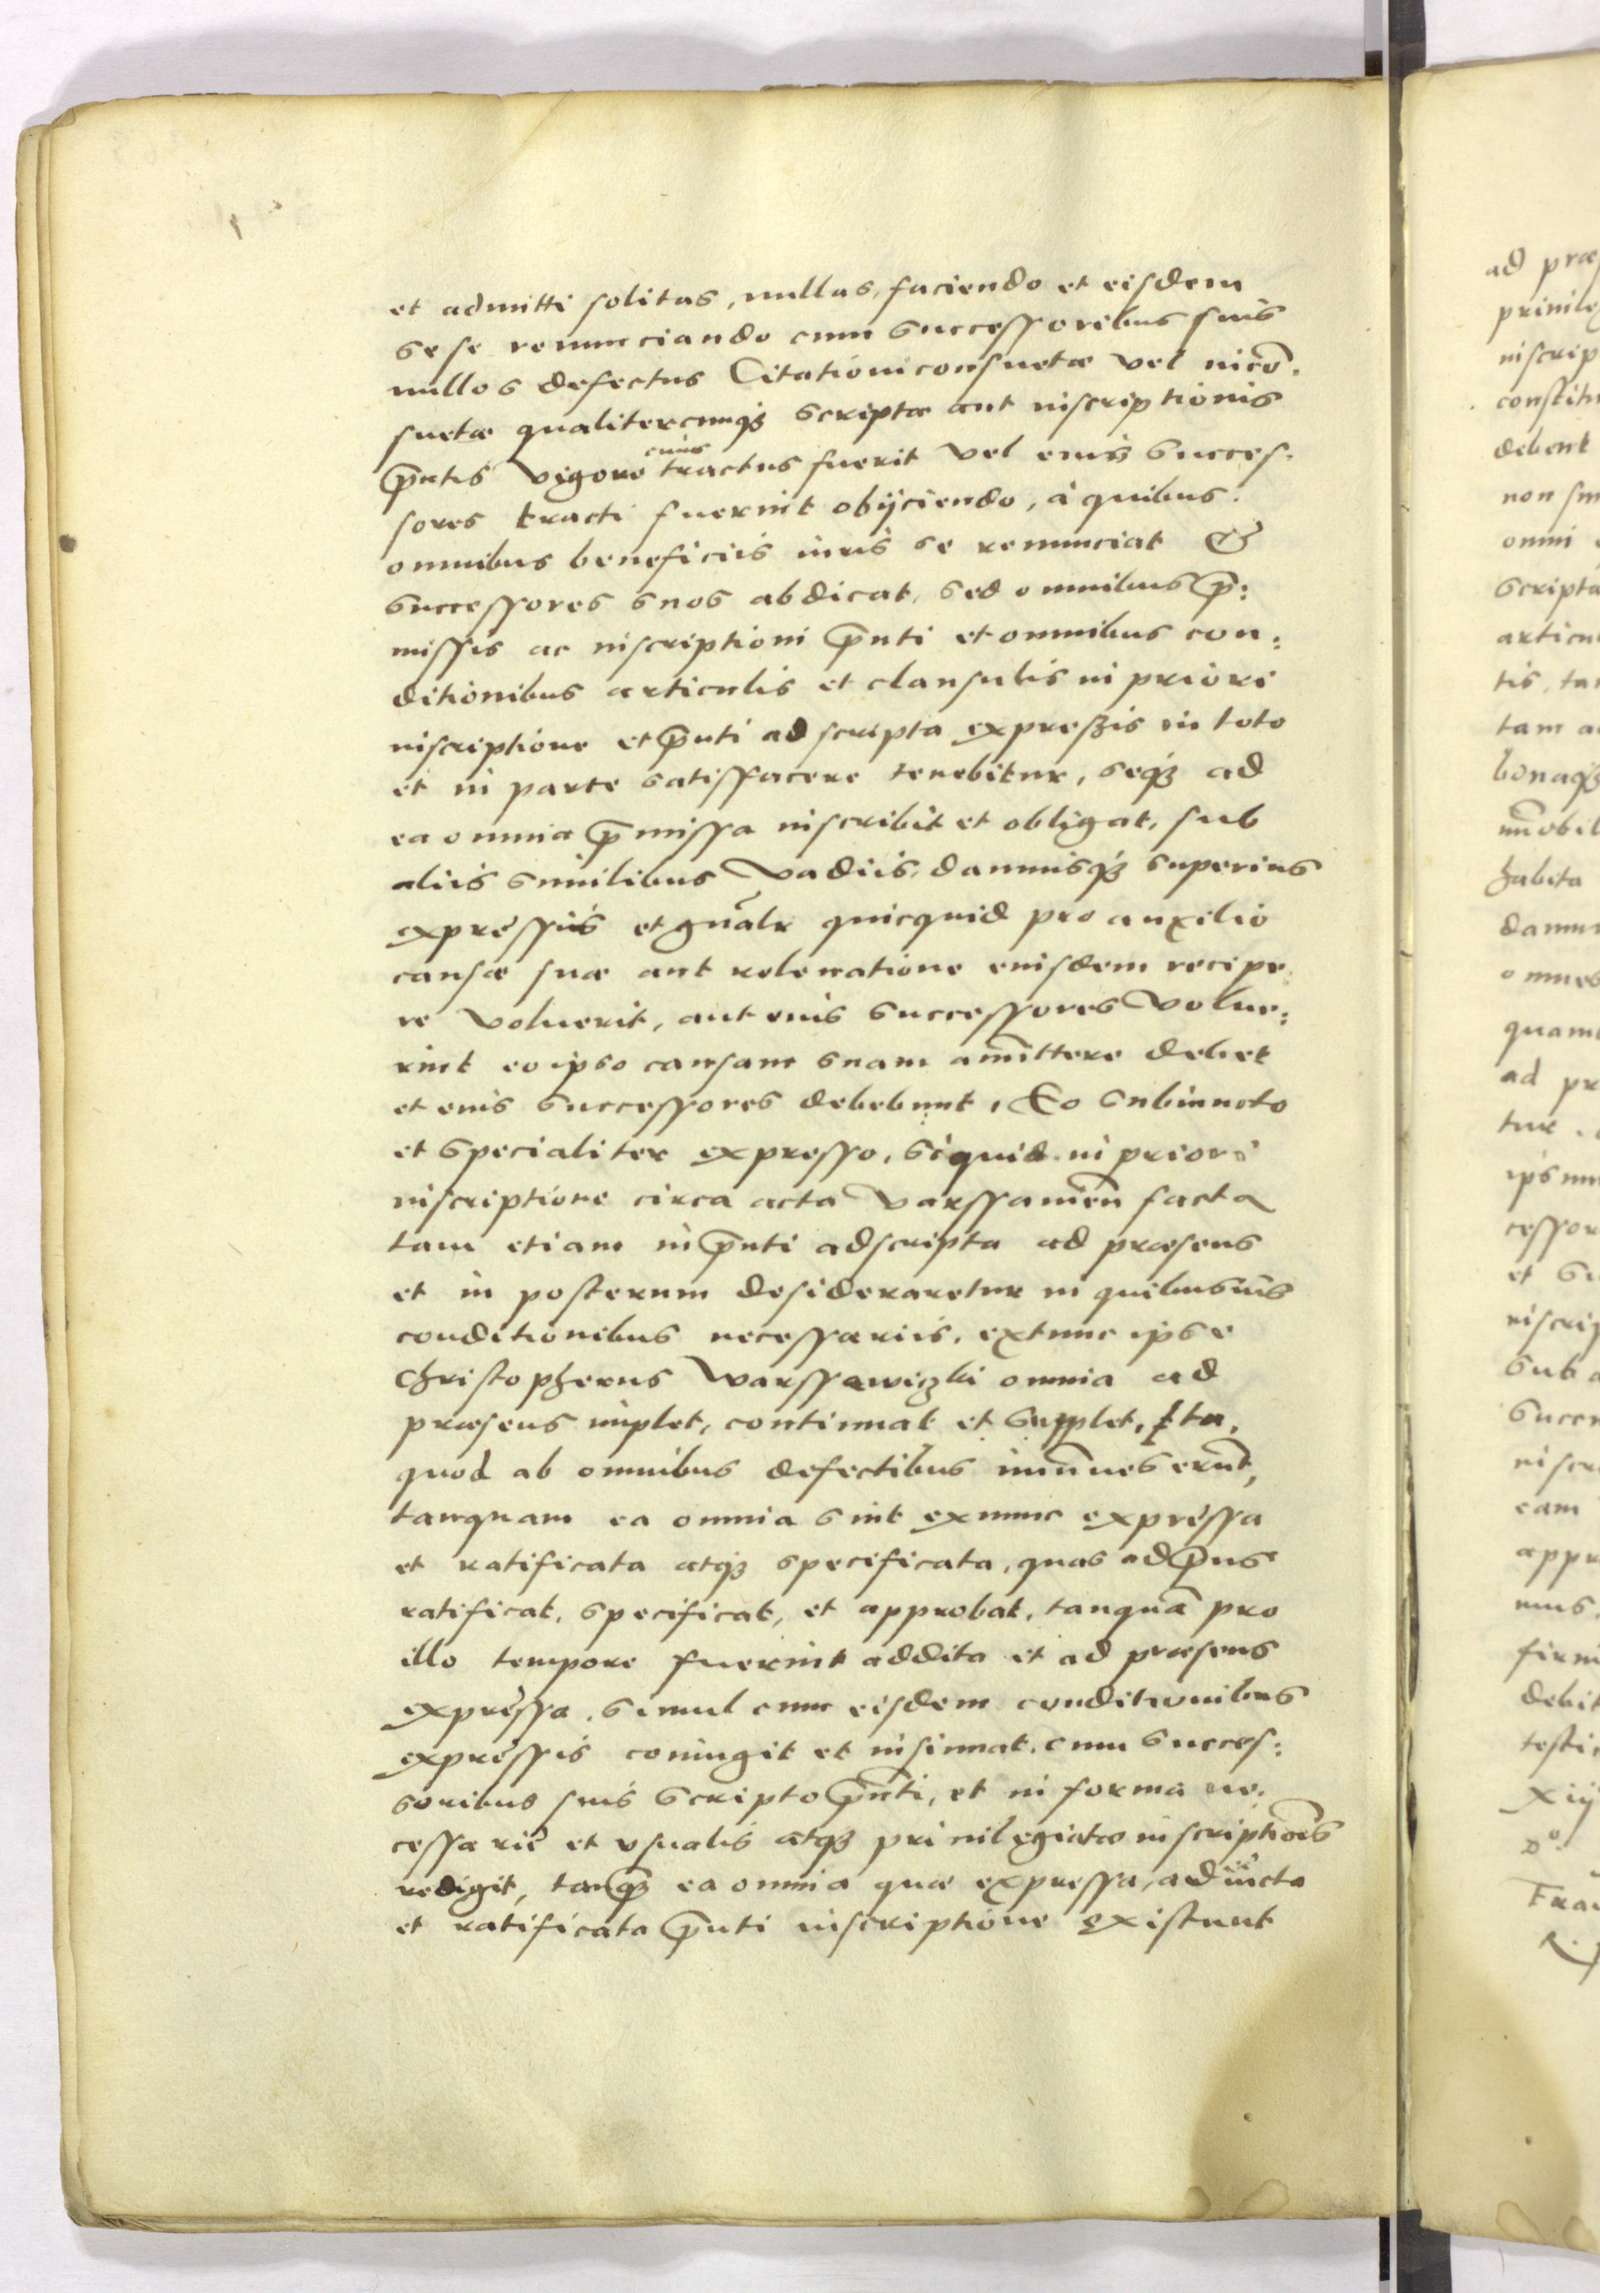 et admitti solitas, nullas, faciendo et eisdem
sese renunciando cum successoribus suis
nullos defectus Citationi consuetæ vel incō.
suetæ qualitercunqȝ scriptæ aut inscriptionis
p̄ntis vigore cuius tractus fuerit vel eius succes.
sores tracti fuerint obijciendo, à quibus.
omnibus beneficiis iuris se renunciat &
successores suos abdicat, sed omnibus p̄:
missis ac inscriptioni p̄nti et omnibus con:
ditionibus articulis et clausulis in priori
inscriptione et p̄nti adscripta expreßis in toto
et in parte satisfacere tenebitur, seqȝ ad
ea omnia p̄missa inscribit et obligat, sub
aliis similibus vadiis, damnisqȝ superius
expressis et gn̄alr quicquid pro auxilio
causæ suæ aut releuatione eiusdem recipe
re voluerit, aut eius successores volue:
rint eo ipso causam suam am̄ittere debet
et eius successores debebunt, Eo subiuncto
et specialiter expresso, si quid in priori
inscriptione circa acta Varssauien̄ facta
tam etiam in p̄nti adscripta ad præsens
et in posterum desideraretur in quibusuis
conditionibus necessariis, extunc ipse
Christopherus Warssewiczki omnia ad
præsens implet, continuat et supplet, Ita,
quod ab omnibus defectibus im̄unes erun̄t,
tanquam ea omnia sint exnunc expressa
et ratificata atqȝ specificata, quas ad p̄ns
ratificat, specificat, et approbat, tanquā pro
illo tempore fuerint addita et ad præsens
expressa, simul cum eisdem conditionibus
expressis coniungit et insinuat, cum succes:
soribus suis scripto p̄nti, et in forma ne.
cessariē et vsualis atqȝ priuilegiatæ inscriptiōis
redigit, tanqȝ ea omnia quæ expressa, adiuncta
et ratificata p̄nti inscriptione existunt